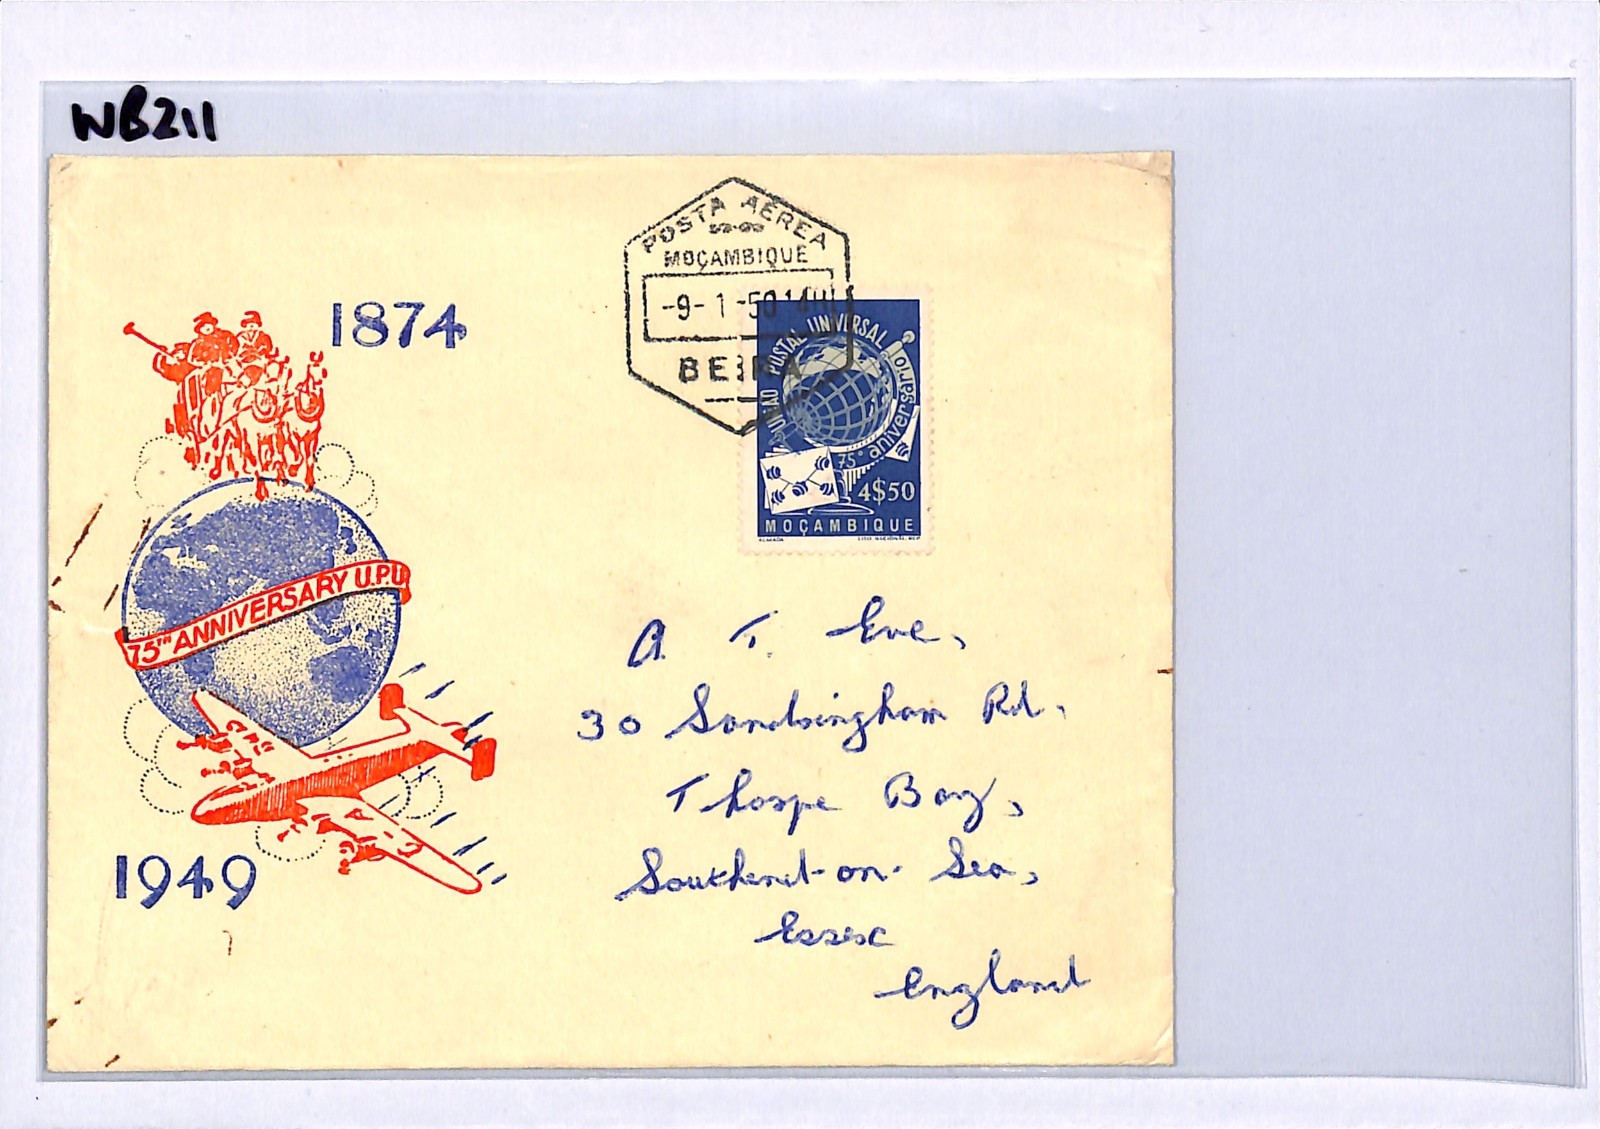 WB211
POSTA AÉREA
MOÇAMBIQUE
-9-1-50 14H
BEIRA
1874
UNIÃO POSTAL UNIVERSAL
75º aniversário
4$50
MOÇAMBIQUE
ALMADA LITO NACIONAL
75TH ANNIVERSARY U.P.U
1949
A. T. Eve,
30 Sandringham Rd.
Thorpe Bay,
Southend-on-Sea,
Essex
England